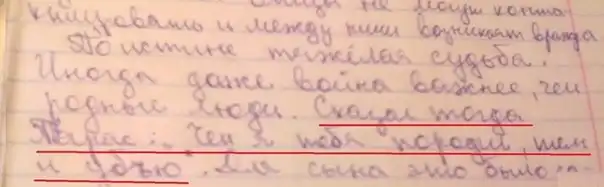 не могут конта-
и между ними возникает вражда
Поистине тяжёлая судьба.
Иногда даже война важнее, чем
родные люди. Сказал тогда
Тарас: „Чем я тебя породил, тем
и убью". Для сына это было